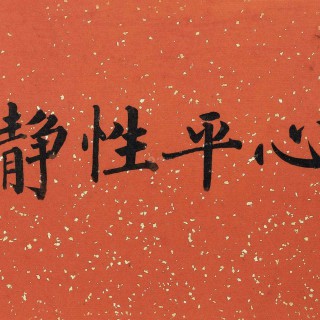 静性平心